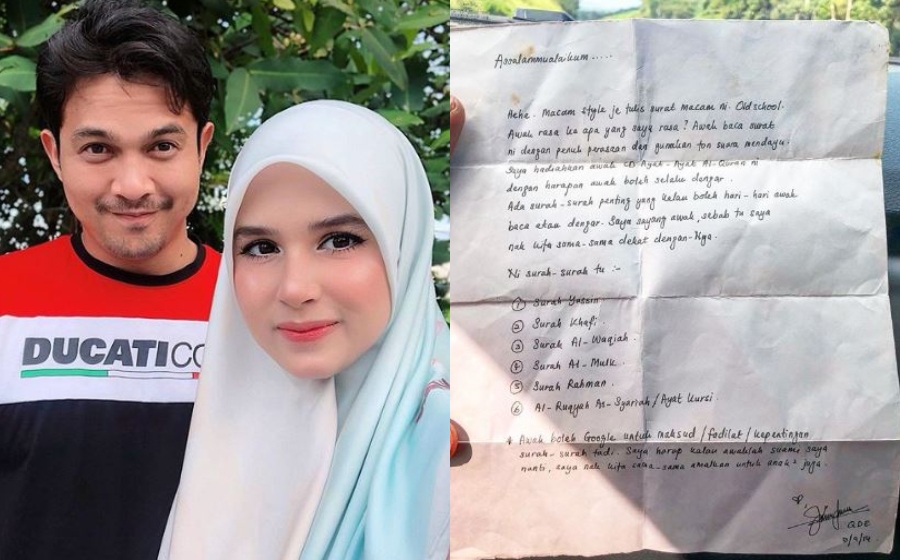 DUCATICO
Assalammualaikum.....
Hehe. Macam style je tulis surat macam ni. Oldschool.
Awak rasa ke apa yang saya rasa? Awak baca surat
ni dengan penuh perasaan dan gunakan ton suara mendayu.
Saya hadiahkan awak CD Ayat-Ayat Al-Quran ni
dengan harapan awak boleh selalu dengar.
Ada surah-surah penting yang kalau boleh hari-hari awak
baca atau dengar. Saya sayang awak, sebab tu saya
nak kita sama-sama dekat dengan-Nya.
Ni surah-surah tu :-
① Surah Yassin.
② Surah Khafi.
③ Surah Al-Waqiah.
④ Surah Al-Mulk.
⑤ Surah Rahman.
⑥ Al-Ruqyah As-Syariah/Ayat Kursi.
* Awak boleh Google untuk maksud/fadilat/kepentingan
surah-surah tadi. Saya harap kalau awaklah suami saya
nanti, saya nak kita sama-sama amalkan untuk anak² juga.
QDE